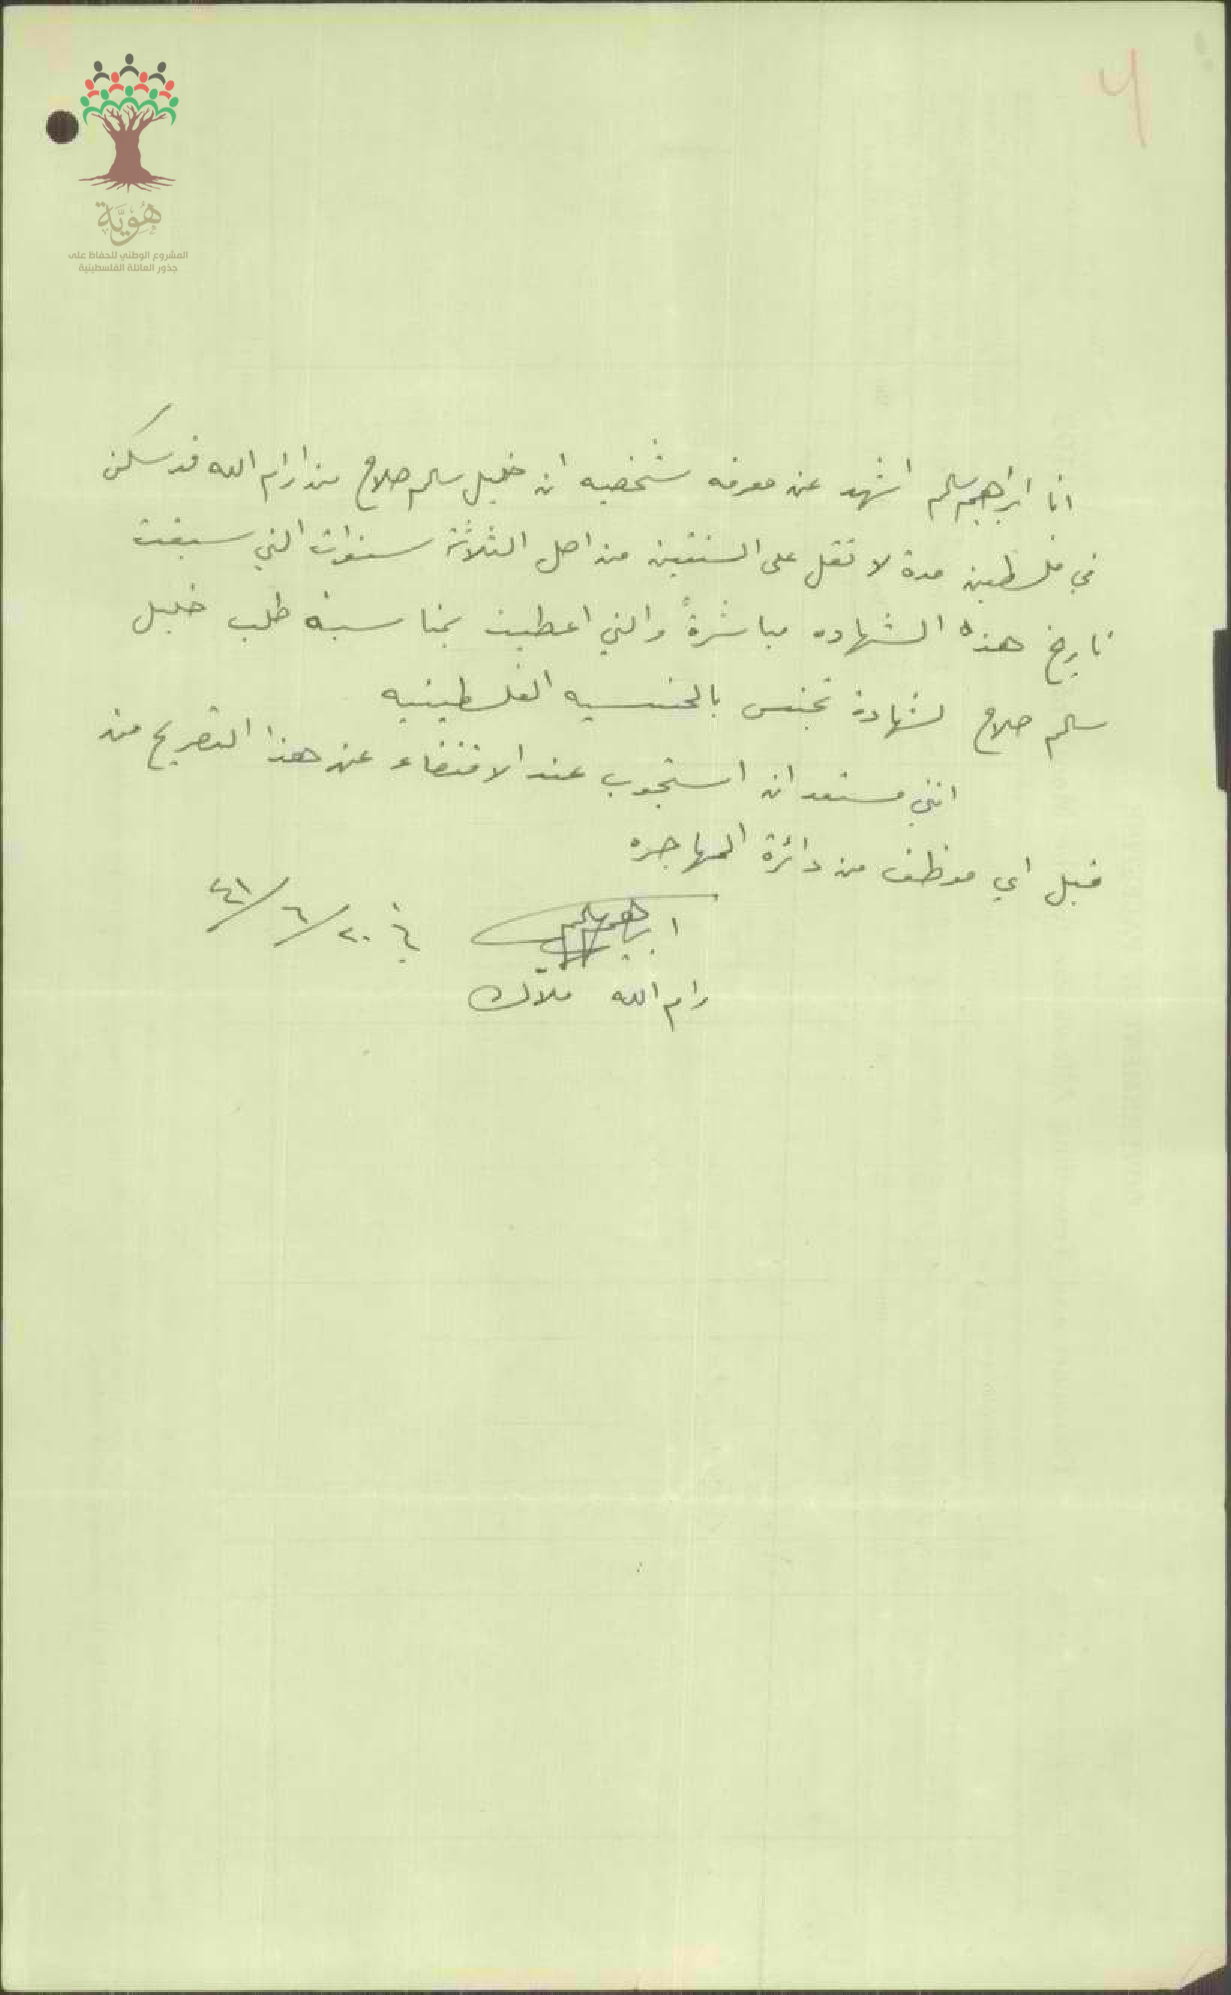 هُوِيَّة
المشروع الوطني للحفاظ على
جذور العائلة الفلسطينية
انا ابراهيم سالم اشهد عن معرفه شخصيه ان خليل سالم صلاح من رام الله قد سكن
في فلسطين مدة لا تقل على السنتين من اصل الثلاثة سنوات التي سبقت
تاريخ هذه الشهاده مباشرةً والتي اعطيت بمناسبة طلب خليل
سالم صلاح لشهادة تجنس بالجنسيه الفلسطينيه
انني مستعد ان استجوب عند الاقتضاء عن هذا التصريح من
قبل اي موظف من دائرة المهاجره
ابراهيم سالم في ٢٠/٦/٤١
رام الله ملاك